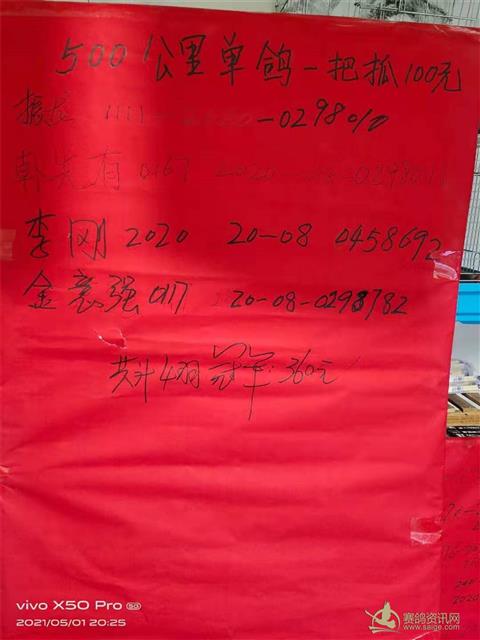 500公里单鸽一把抓100元
1111 -0298010
韩先有 0167 2020
李刚 2020 20-08 0458692
金意强 0117 20-08-0298782
共4羽 冠军: 360元
vivo X50 Pro 5G
2021/05/01 20:25
赛鸽资讯网
www.saige.com